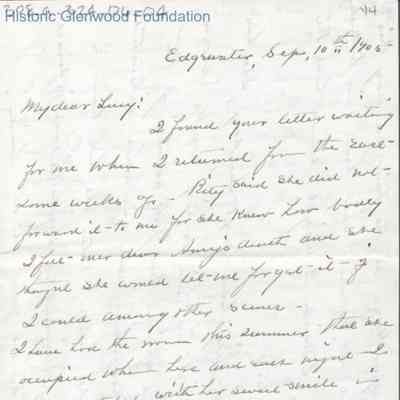 Historic Glenwood Foundation
1/4
Edgewater, Sep. 10th 1905
My dear Lucy:
I found your letter waiting
for me when I returned from the east
some weeks ago. said she did not
forward it to me for she knew how badly
I felt over dear Amy's death and she
she would let me forget it if
I could among other scenes.
I have had the room this summer that she
occupied when here and each night I
with her sweet smile in